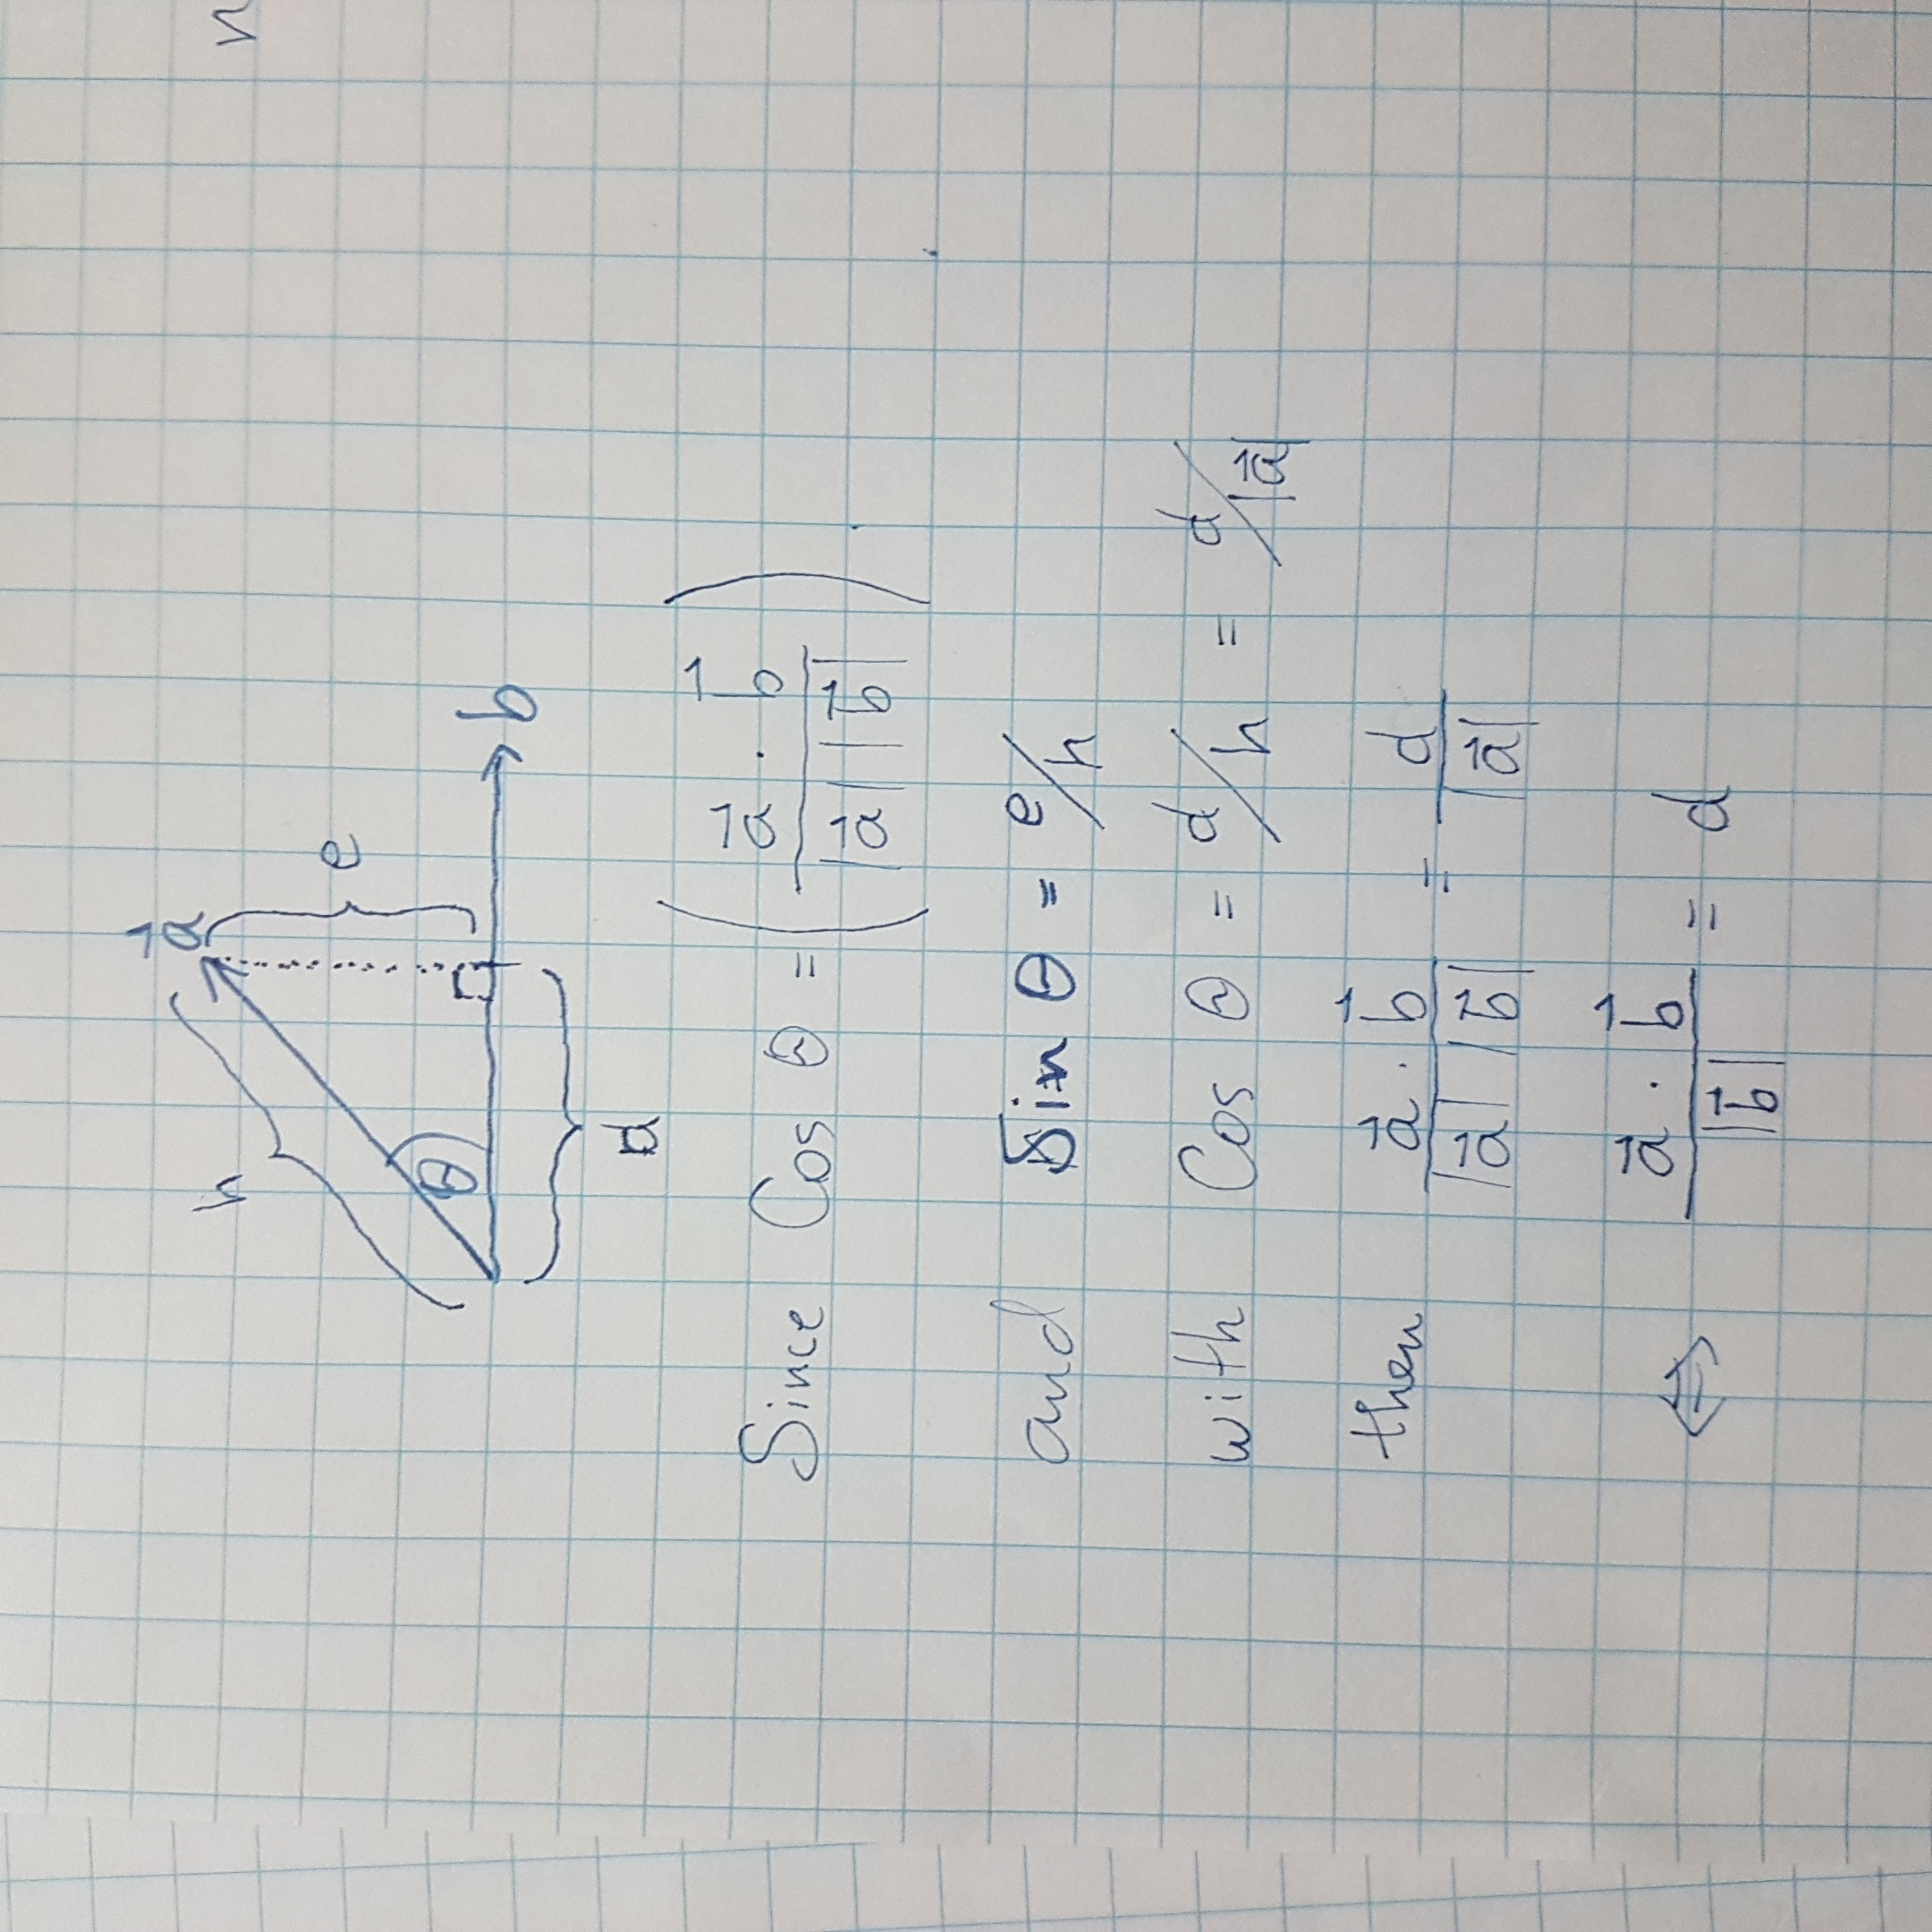 a⃗
h
n
e
θ
b
d
Since Cos θ = ( a⃗ · b⃗ / |a⃗| |b⃗| )
and Sin θ = e/h
with Cos θ = d/h = d/|a⃗|
then a⃗ · b⃗ / |a⃗| |b⃗| = d / |a⃗|
⇔ a⃗ · b⃗ / |b⃗| = d